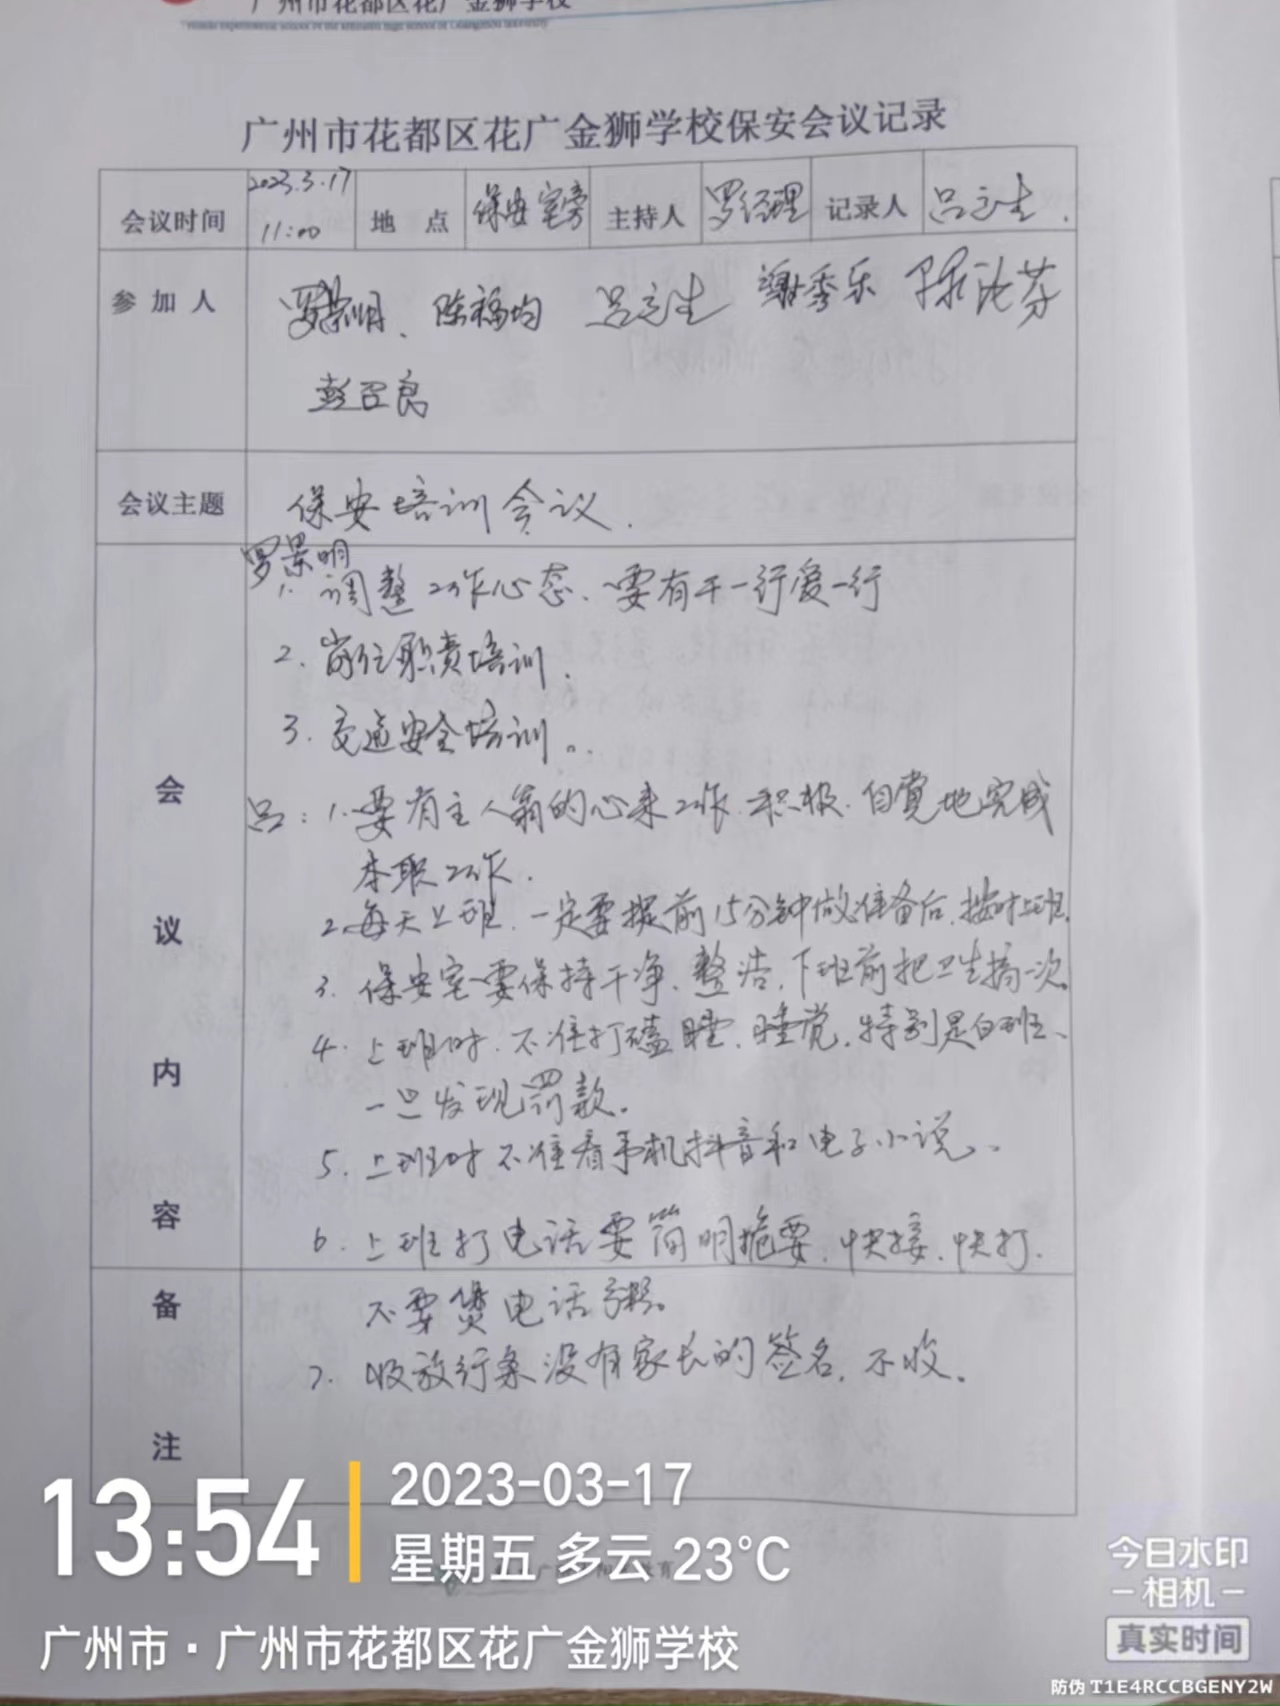 广州市花都区花广金狮学校
广州市花都区花广金狮学校保安会议记录
会议时间 2023.3.17 11:00 地 点 保安室旁 主持人 罗经理 记录人 吕立生.
参加人 罗景明、陈福均 吕立生 谢秀乐
彭召良
会议主题 保安培训会议.
罗景明
1. 调整工作心态、要有干一行爱一行
2. 岗位职责培训.
3. 交通安全培训。
吕：1. 要有主人翁的心来工作.积极.自觉地完成
本职工作.
2. 每天上班.一定要提前15分钟做准备后.按时上班.
3. 保安室要保持干净.整洁,下班前把卫生搞一次.
4. 上班时.不准打瞌睡.睡觉.特别是白班、
一旦发现罚款。
5. 上班时不准看手机抖音和电子小说、
6. 上班打电话要简明扼要.快接.快打.
不要煲电话粥。
7. 收放行条没有家长的签名.不收。
会议内容
备注
13:54 2023-03-17
星期五 多云 23°C
广州市·广州市花都区花广金狮学校
今日水印
-相机-
真实时间
防伪 T1E4RCCBGENY2W